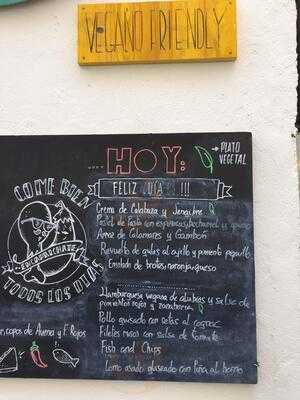 VEGANO FRIENDLY
HOY:
PLATO
VEGETAL
FELIZ DÍA !!!
Crema de Calabaza y Jengibre
Pastel de Pasta con espinacas, bechamel y queso
Arroz de Calamares y Gambón
Revuelto de gulas al ajillo y pimiento piquillo
Ensalada de brotes, naranja, queso
Hamburguesa vegana de alubias y salsa de
pimientos rojos y zanahoria
Pollo guisado con setas al cognac
Filetes rusos con salsa de tomate
Fish and Chips
Lomo asado glaseado con Piña al horno
COME BIEN
ESCARAMUCHATE
TODOS LOS DÍAS
copos de Avena y F. Rojos